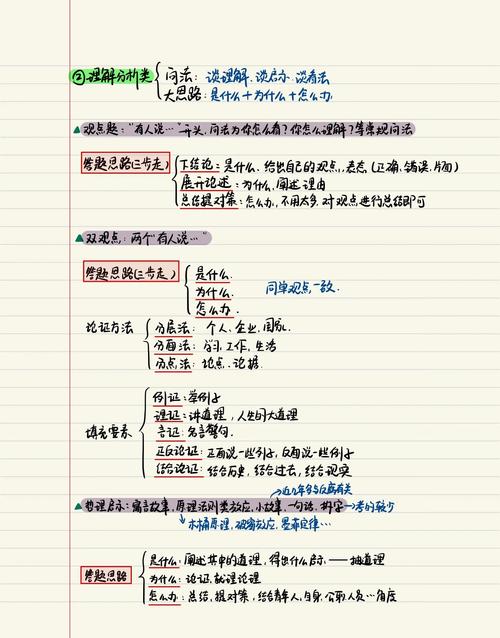 ②理解分析类 { 问法：谈理解、谈启示、谈看法
大思路：是什么+为什么+怎么办
▲观点题："有人说…"开头，问法为你怎么看？你怎么理解？等常规问法
答题思路(三步走) { 下结论：是什么、给出自己的观点,表态(正确、错误、片面)
展开论述：为什么,阐述理由
总结提对策：怎么办,不用太多,对观点进行总结即可
▲双观点：两个"有人说…"
答题思路(三步走) { 是什么.
为什么.
怎么办.
同单观点一致.
论证方法 { 分层法：个人、企业、国家.
分面法：学习、工作、生活
分点法：论点、论据.
填充要素 { 例证：举例子
理证：讲道理,人生的大道理
言证：名言警句.
正反论证：正面说一些例子,反面说一些例子
结合论证：结合历史,结合过去,结合现实
→近几年多与反腐有关
▲哲理启示：寓言故事,原理法则类效应,小故事,一句话,拆字→考的较少
→木桶原理,破窗效应,墨菲定律…
答题思路 { 是什么：阐述其中的道理,得出什么启示——抽道理
为什么：论证,就理论理
怎么办：总结,提对策,结合青年人,自身,公职人员…角度